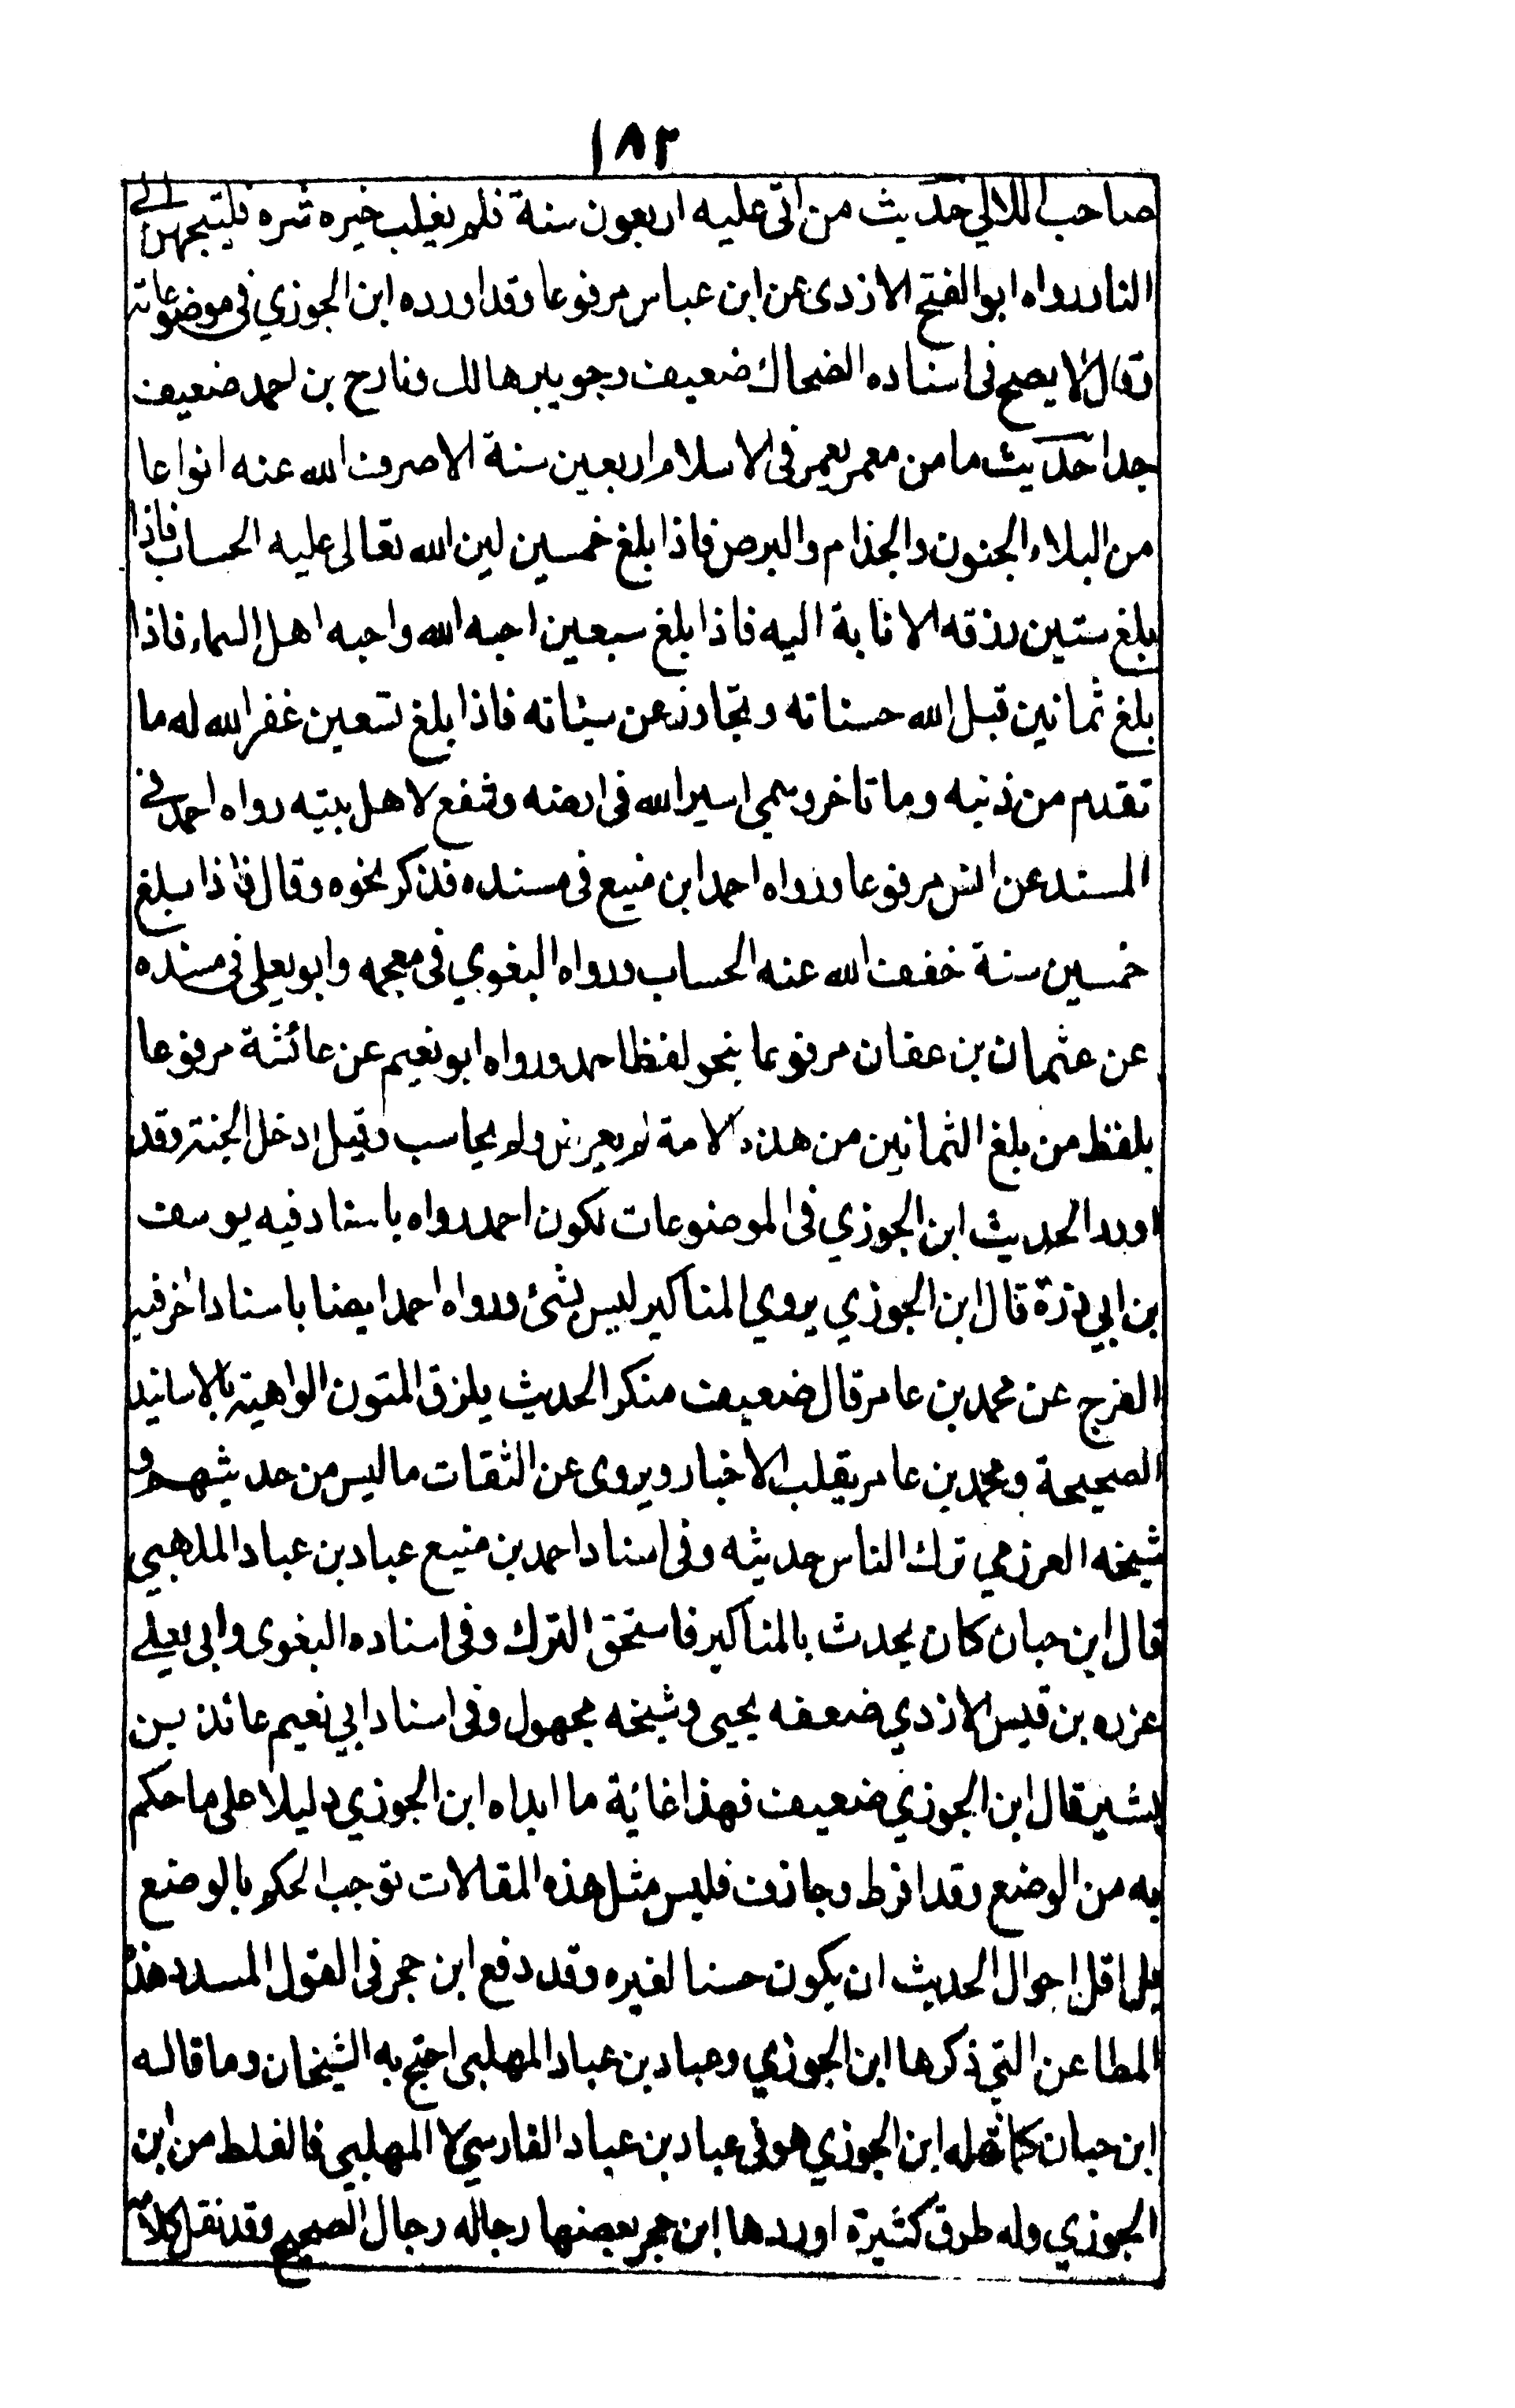 ١٨٢
صاحب اللالي حديث من اتى عليه اربعون سنة فلم يغلب خيره شره فليتجهز الى
النار رواه ابو الفتح الازدى عن ابن عباس مرفوعا وقد اورده ابن الجوزي فى موضوعاته
وقال لا يصح فى اسناده الضحاك ضعيف وجويبر هالك وبارح بن احمد ضعيف
جدا حديث ما من معمر يعمر فى الاسلام اربعين سنة الا صرف الله عنه انواعا
من البلاء الجنون والجذام والبرص فاذا بلغ خمسين لين الله تعالى عليه الحساب فاذا
بلغ ستين رزقه الانابة اليه فاذا بلغ سبعين احبه الله واحبه اهل السماء فاذا
بلغ ثمانين قبل الله حسناته وتجاوز عن سيئاته فاذا بلغ تسعين غفر الله له ما
تقدم من ذنبه وما تاخر وسمي اسير الله فى ارضه وشفع لاهل بيته رواه احمد فى
المسند عن انس مرفوعا ورواه احمد ابن منيع فى مسنده فذكر نحوه وقال فاذا بلغ
خمسين سنة خفف الله عنه الحساب ورواه البغوي فى معجمه وابو يعلى فى مسنده
عن عثمان بن عفان مرفوعا بنحو لفظ احمد ورواه ابو نعيم عن عائشة مرفوعا
بلفظ من بلغ الثمانين من هذه الامة لم يعرض ولم يحاسب وقيل ادخل الجنة وقد
اورد الحديث ابن الجوزي فى الموضوعات لكون احمد رواه باسناد فيه يوسف
بن ابي ذرة قال ابن الجوزي يروي المناكير ليس بشئ ورواه احمد ايضا باسناد اخر فيه
الفرج عن محمد بن عامر قال ضعيف منكر الحديث يلزق المتون الواهية بالاسانيد
الصحيحة ومحمد بن عامر يقلب الاخبار ويروى عن الثقات ما ليس من حديثهم و
شيخه العرزمي ترك الناس حديثه وفى اسناد احمد بن منيع عباد بن عباد المهلبي
قال ابن حبان كان يحدث بالمناكير فاستحق الترك وفى اسناده البغوى وابى يعلى
عزره بن قيس الازدي ضعفه يحيى وشيخه مجهول وفى اسناد ابي نعيم عائذ بن
بشير قال ابن الجوزي ضعيف فهذا غاية ما ابداه ابن الجوزي دليلا على ما حكم
به من الوضع وقد افرط وجازف فليس مثل هذه المقالات توجب الحكم بالوضع
بل اقل احوال الحديث ان يكون حسنا لغيره وقد دفع ابن حجر فى القول المسدد هذه
المطاعن التي ذكرها ابن الجوزي وعباد بن عباد المهلبى احتج به الشيخان وما قاله
ابن حبان كما نقله ابن الجوزي هو فى عباد بن عباد الفارسي لا المهلبي فالغلط من ابن
الجوزي وله طرق كثيرة اوردها ابن حجر بعضها رجاله رجال الصحيح وقد نقل كلامه